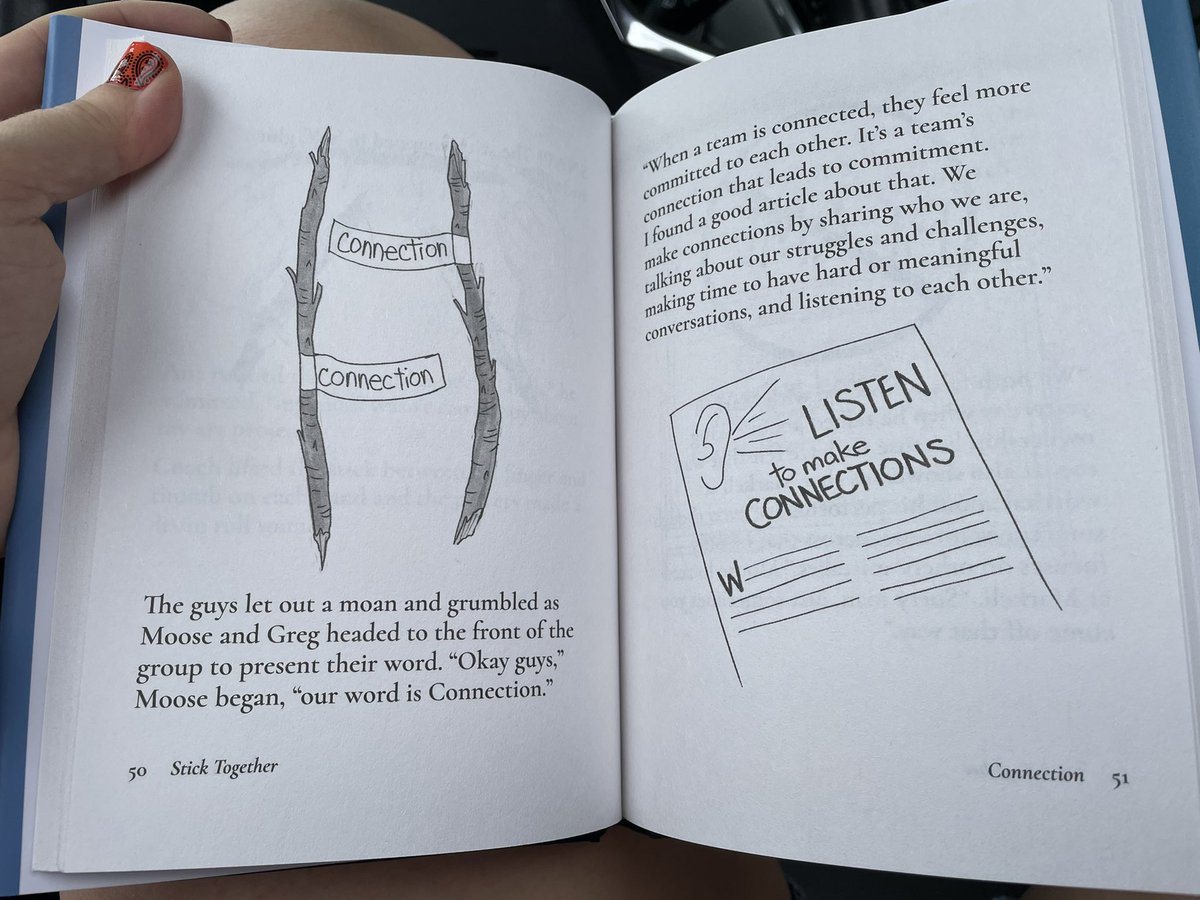 Connection
Connection
The guys let out a moan and grumbled as
Moose and Greg headed to the front of the
group to present their word. “Okay guys,”
Moose began, “our word is Connection.”
50 Stick Together
“When a team is connected, they feel more
committed to each other. It’s a team’s
connection that leads to commitment.
I found a good article about that. We
make connections by sharing who we are,
talking about our struggles and challenges,
making time to have hard or meaningful
conversations, and listening to each other.”
LISTEN
to make
CONNECTIONS
W
Connection 51